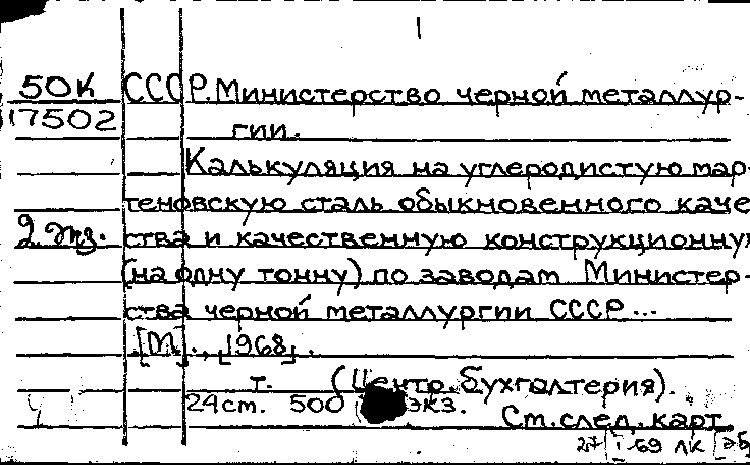 50К СССР. Министерство черной металлур-
17502 гии.
Калькуляция на углеродистую мар-
теновскую сталь обыкновенного каче
2 экз. ства и качественную конструкционную
(на одну тонну) по заводам Министер-
ства черной металлургии СССР...
[М]., [1968].
т. (Центр. бухгалтерия).
24 см. 500 экз.
См. след. карт
27 I-69 ЛК